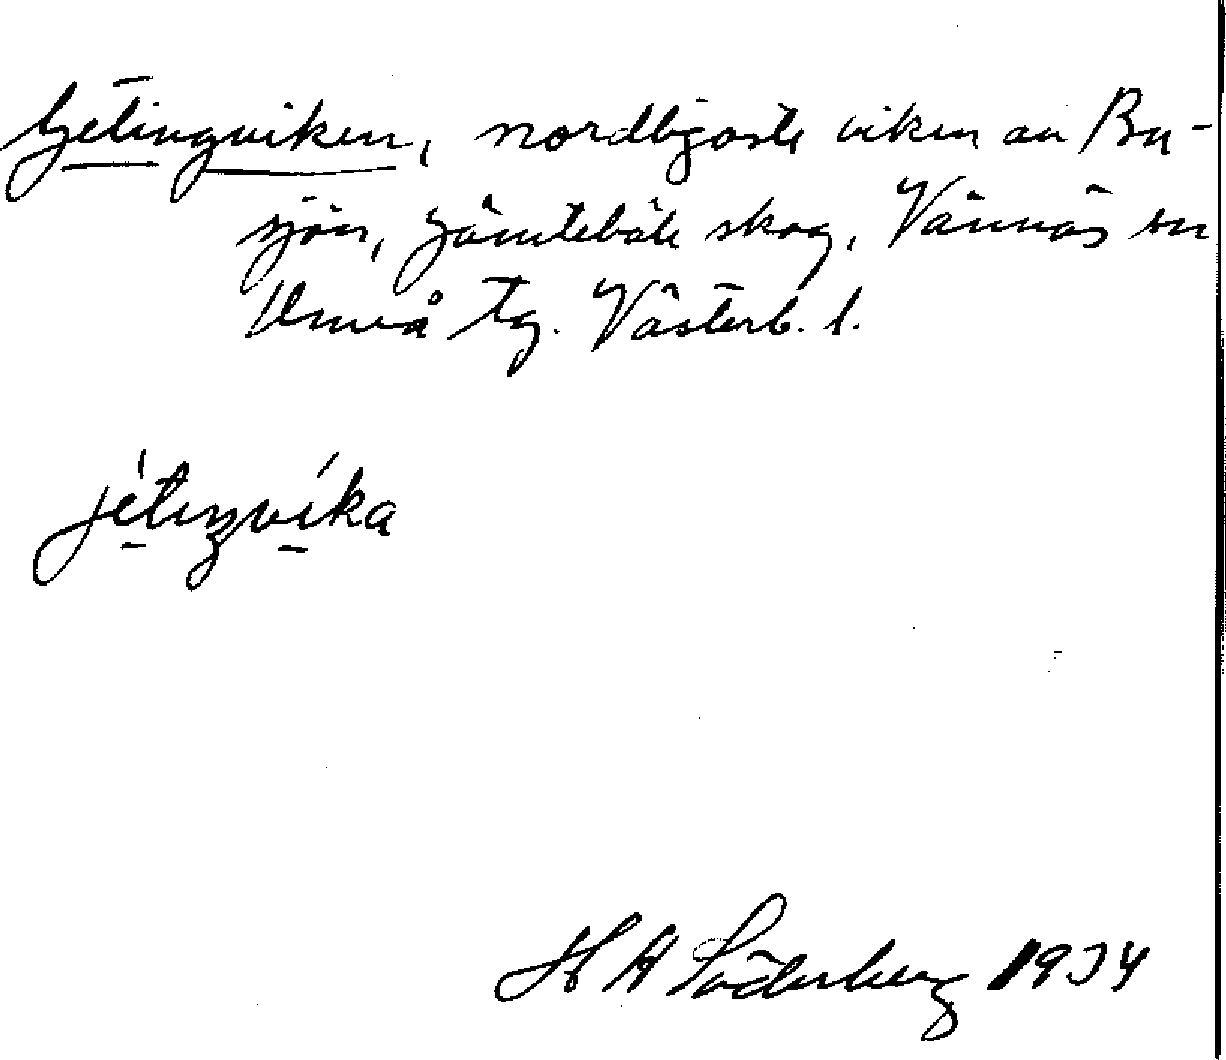 Getingviken, nordligaste viken av Bu-
sjön, Jämtebäle skog, Vännäs sn
Umeå tg. Västerb. l.
jétiŋvíka
H A Söderberg 1934